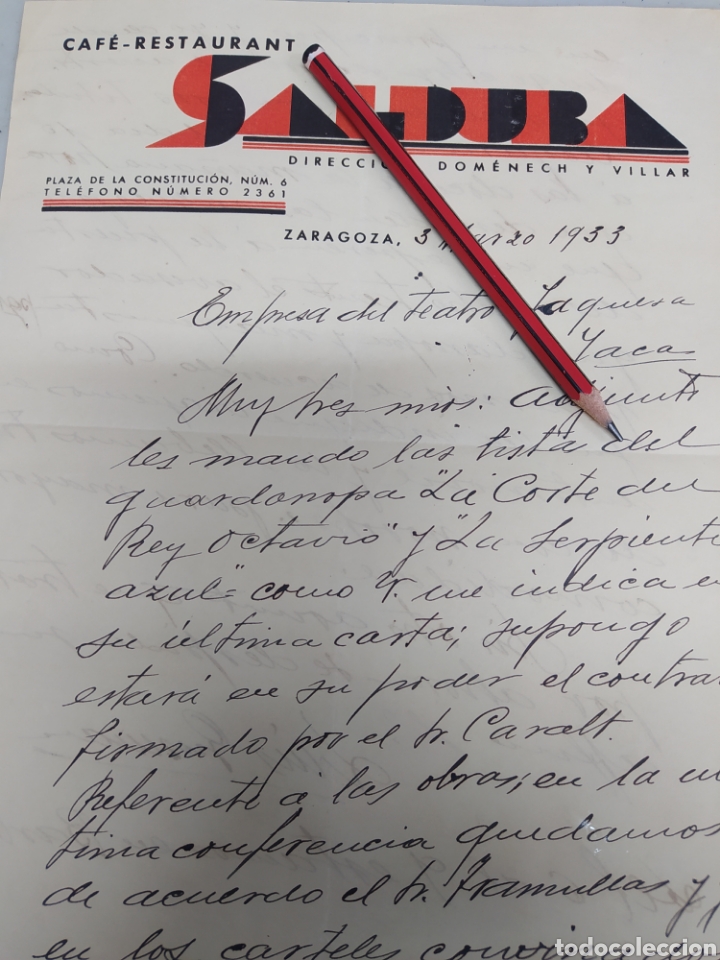 CAFÉ-RESTAURANT
SALDUBA
DIRECCIÓ DOMÉNECH Y VILLAR
PLAZA DE LA CONSTITUCIÓN, NÚM. 6
TELÉFONO NÚMERO 2361
ZARAGOZA, 3 Marzo 1933
Empresa del teatro
Yaca
Muy Sres mios: adjunto
les mando las lista del
guardaropa "La Corte del
Rey Octavio" y "La Serpiente
azul" como V. me indica en
su última carta; supongo
estará en su poder el contra
firmado por el Sr. Caralt.
Referente á las obras, en la
tima conferencia quedamos
de acuerdo el Sr. Tramullas y
en los carteles
todocoleccion.net